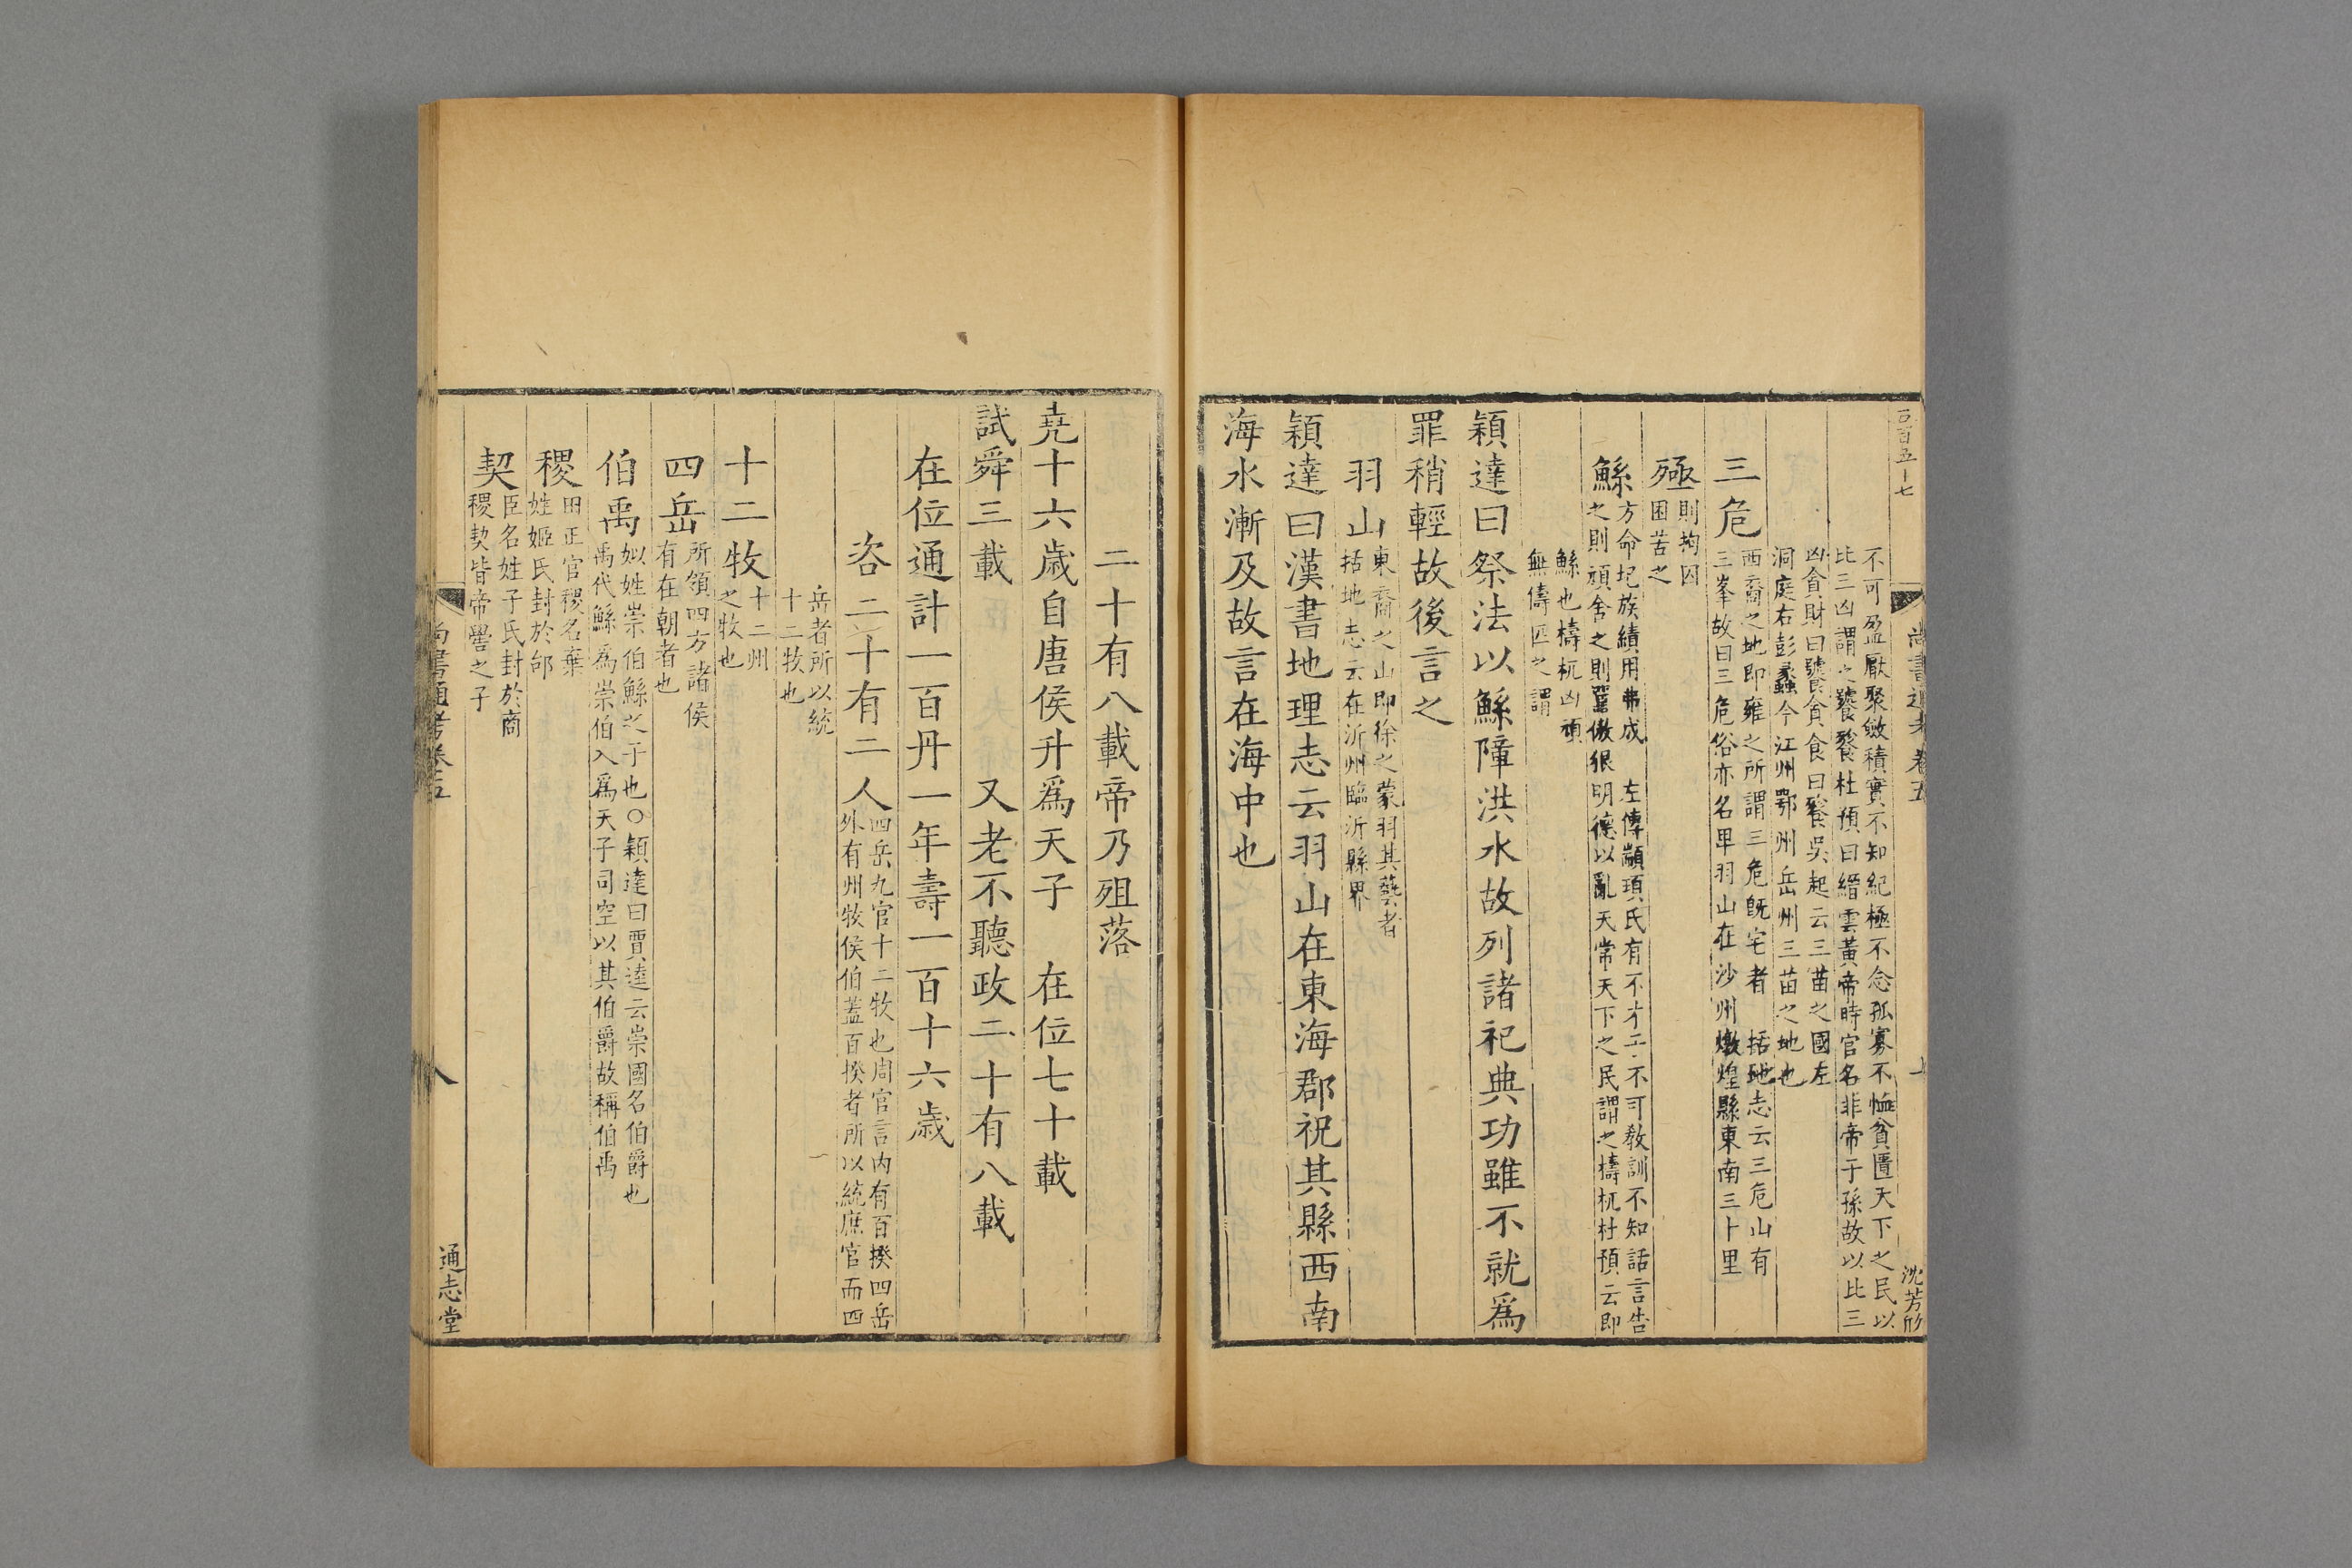 不可盈厭聚斂積實不知紀極不念孤寡不恤貧匱天下之民以
比三凶謂之饕餮杜預曰縉雲黃帝時官名非帝子孫故以比三
凶貪財曰饕貪食曰餮吳起云三苗之國左
洞庭右彭蠡今江州鄂州岳州三苗之地也
三危
西裔之地即雍之所謂三危旣宅者 括地志云三危山有
三峯故曰三危俗亦名卑羽山在沙州燉煌縣東南三十里
殛
則拘囚
困苦之
鯀
方命圮族績用弗成 左傳顓頊氏有不才子不可敎訓不知話言告
之則頑舍之則嚚傲狠明德以亂天常天下之民謂之檮杌杜預云即
鯀也檮杌凶頑
無儔匹之謂
穎達曰祭法以鯀障洪水故列諸祀典功雖不就爲
罪稍輕故後言之
羽山
東裔之山即徐之蒙羽其藝者
括地志云在沂州臨沂縣界
穎達曰漢書地理志云羽山在東海郡祝其縣西南
海水漸及故言在海中也
尚書通考卷五
二十有八載帝乃殂落
堯十六歲自唐侯升爲天子 在位七十載
試舜三載 又老不聽政二十有八載
在位通計一百單一年壽一百十六歲
咨二十有二人
四岳九官十二牧也周官言內有百揆四岳
外有州牧侯伯蓋百揆者所以統庶官而四
岳者所以統
十二牧也
十二牧
十二州
之牧也
四岳
所領四方諸侯
有在朝者也
伯禹
姒姓崇伯鯀之子也○穎達曰賈逵云崇國名伯爵也
禹代鯀爲崇伯入爲天子司空以其伯爵故稱伯禹
稷
田正官稷名棄
姓姬氏封於邰
契
臣名姓子氏封於商
稷契皆帝嚳之子
尚書通考卷五
八
通志堂